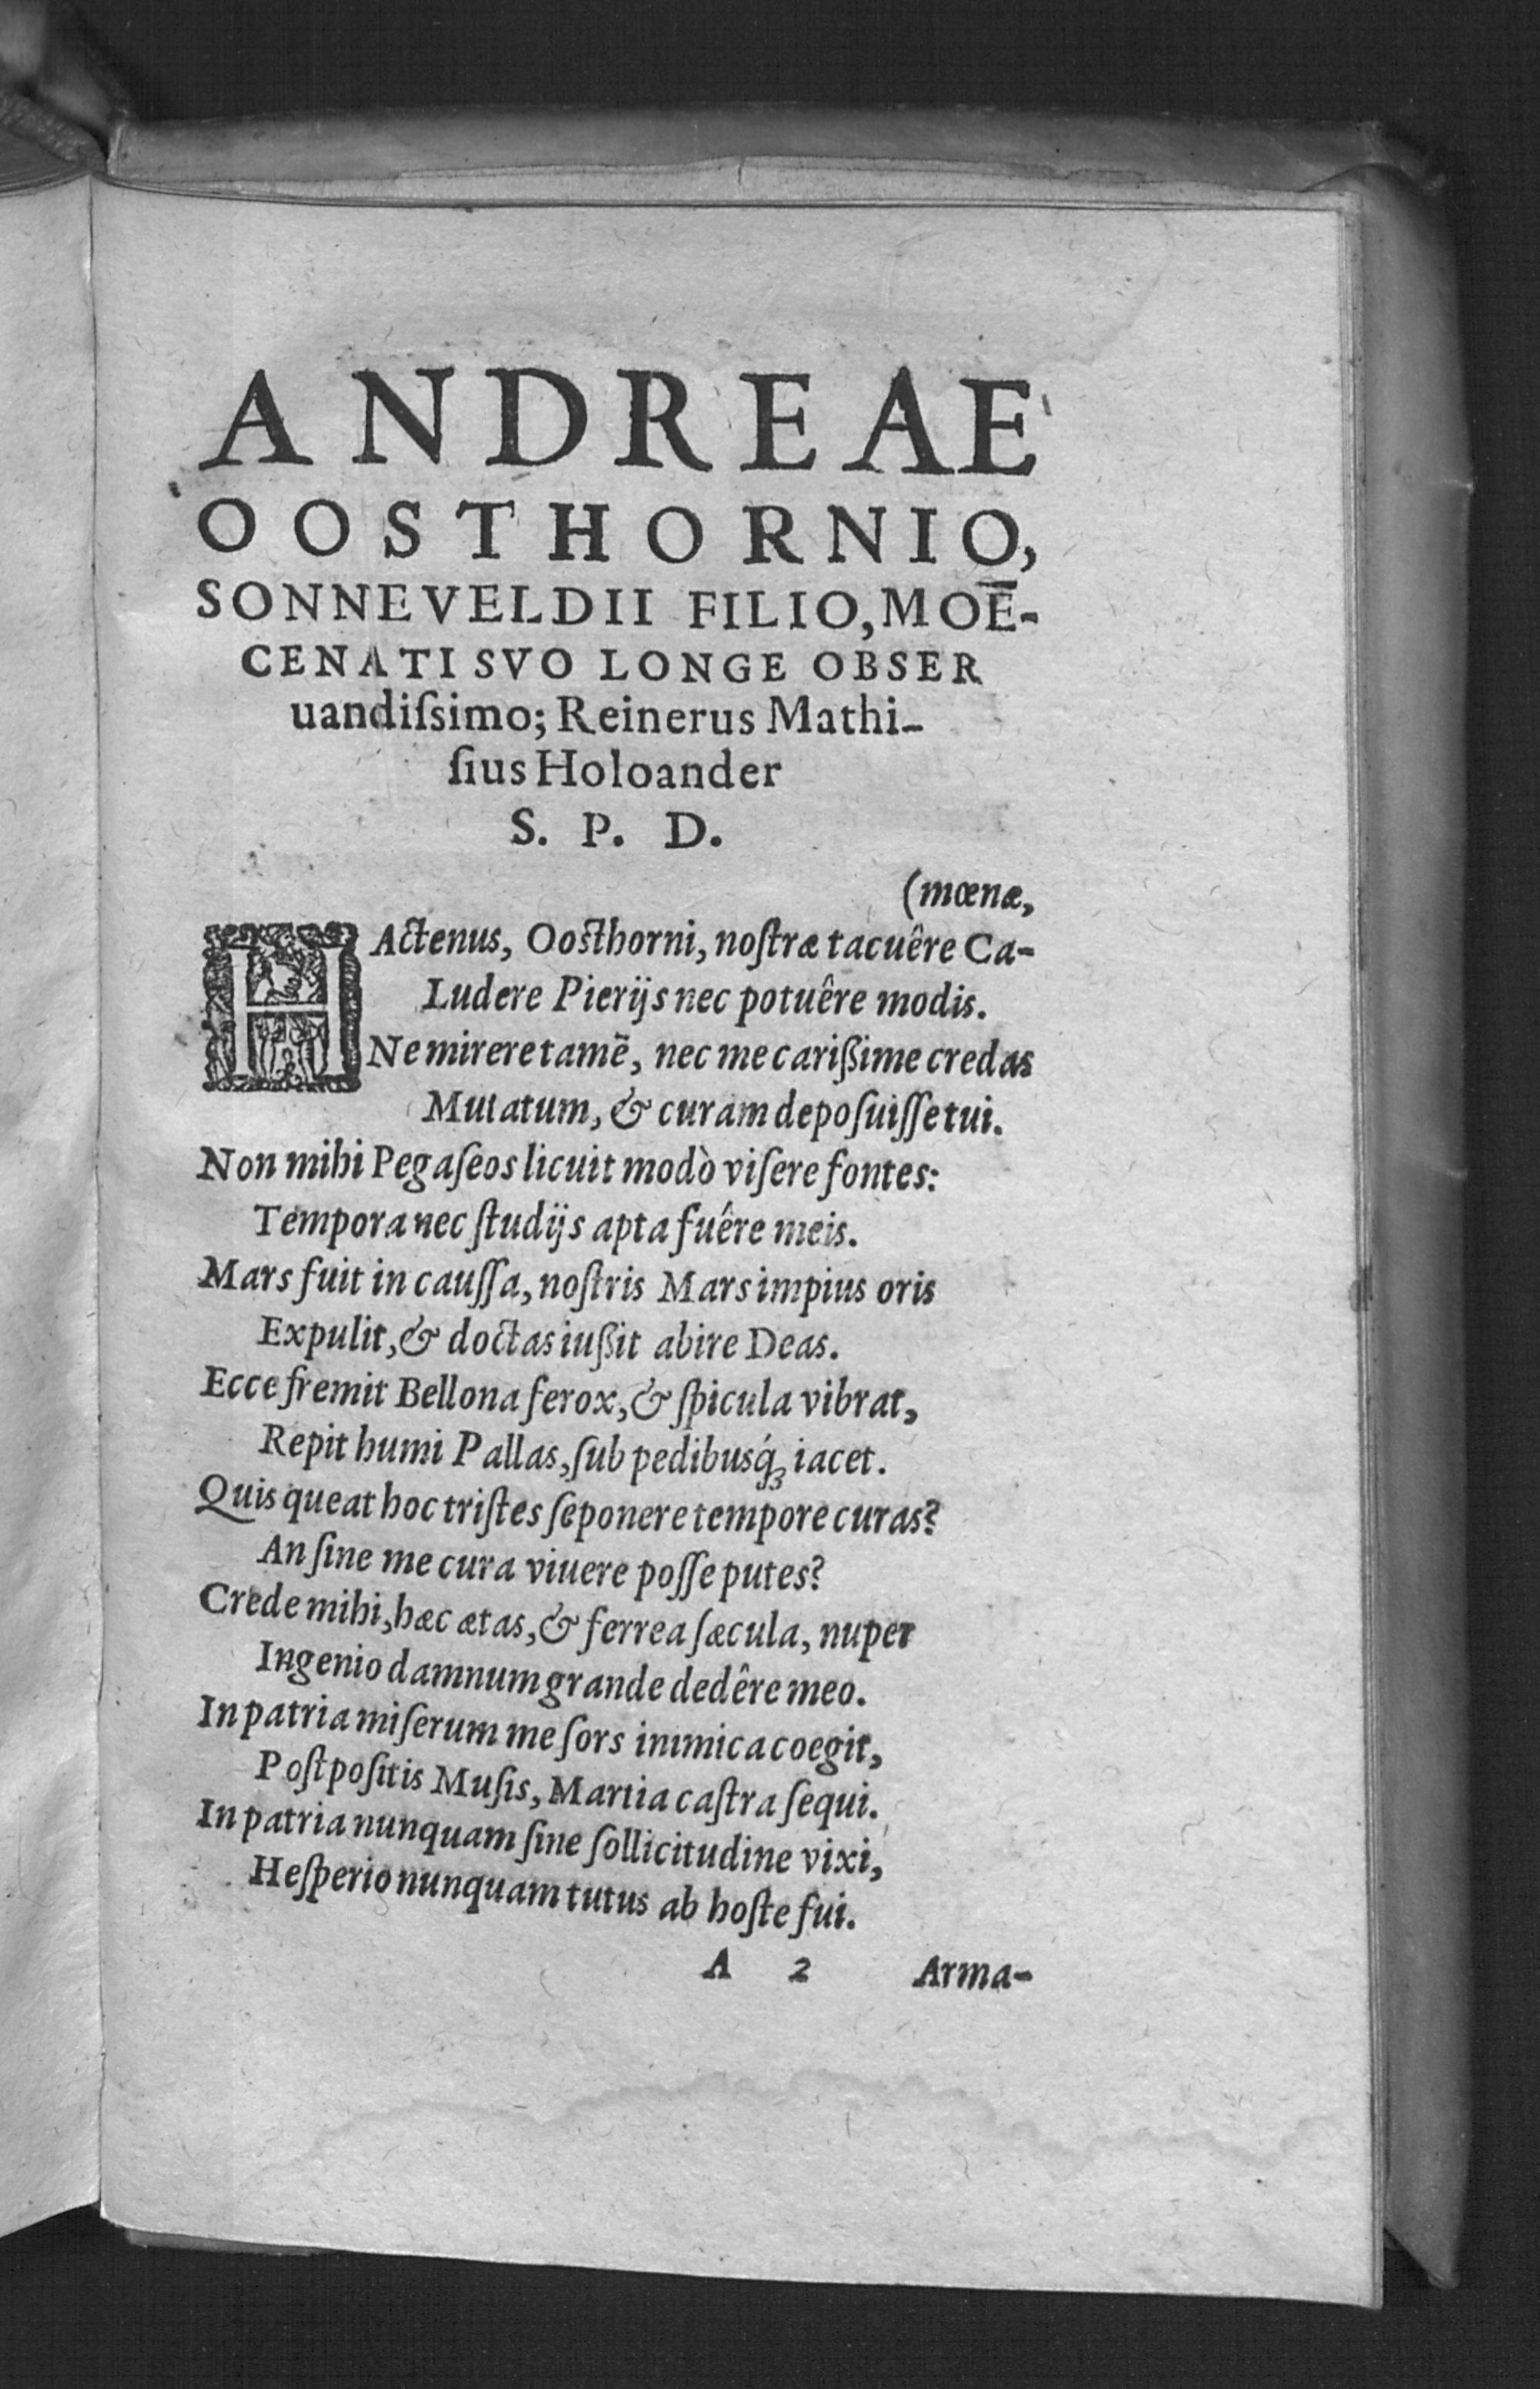 ANDREAE
OOSTHORNIO,
SONNEVELDII FILIO, MOE-
CENATI SVO LONGE OBSER
uandiſsimo; Reinerus Mathi-
ſius Holoander
S. P. D.
(mœnæ,
HActenus, Oosthorni, noſtræ tacuêre Ca-
Ludere Pierijs nec potuêre modis.
Ne mirere tamē, nec me carißime credas
Mutatum, & curam depoſuiſſe tui.
Non mihi Pegaſeos licuit modò viſere fontes:
Tempora nec ſtudijs apta fuêre meis.
Mars fuit in cauſſa, noſtris Mars impius oris
Expulit, & doctas iußit abire Deas.
Ecce fremit Bellona ferox, & ſpicula vibrat,
Repit humi Pallas, ſub pedibusq́ꝫ iacet.
Quis queat hoc triſtes ſeponere tempore curas?
An ſine me cura viuere poſſe putes?
Crede mihi, hæc ætas, & ferrea ſæcula, nuper
Ingenio damnum grande dedêre meo.
In patria miſerum me ſors inimica coegit,
Poſtpoſitis Muſis, Martia caſtra ſequi.
In patria nunquam ſine ſollicitudine vixi,
Heſperio nunquam tutus ab hoſte fui.
A 2 Arma-